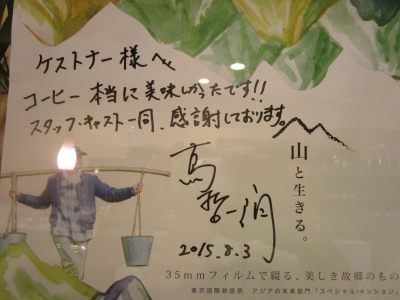 ケストナー様へ
コーヒー本当に美味しかったです!!
スタッフ・キャスト一同、感謝しております。
山と生きる。
2015.8.3
35mmフィルムで綴る、美しき故郷のもの
東京国際映画祭 アジアの未来部門「スペシャル・メンション」